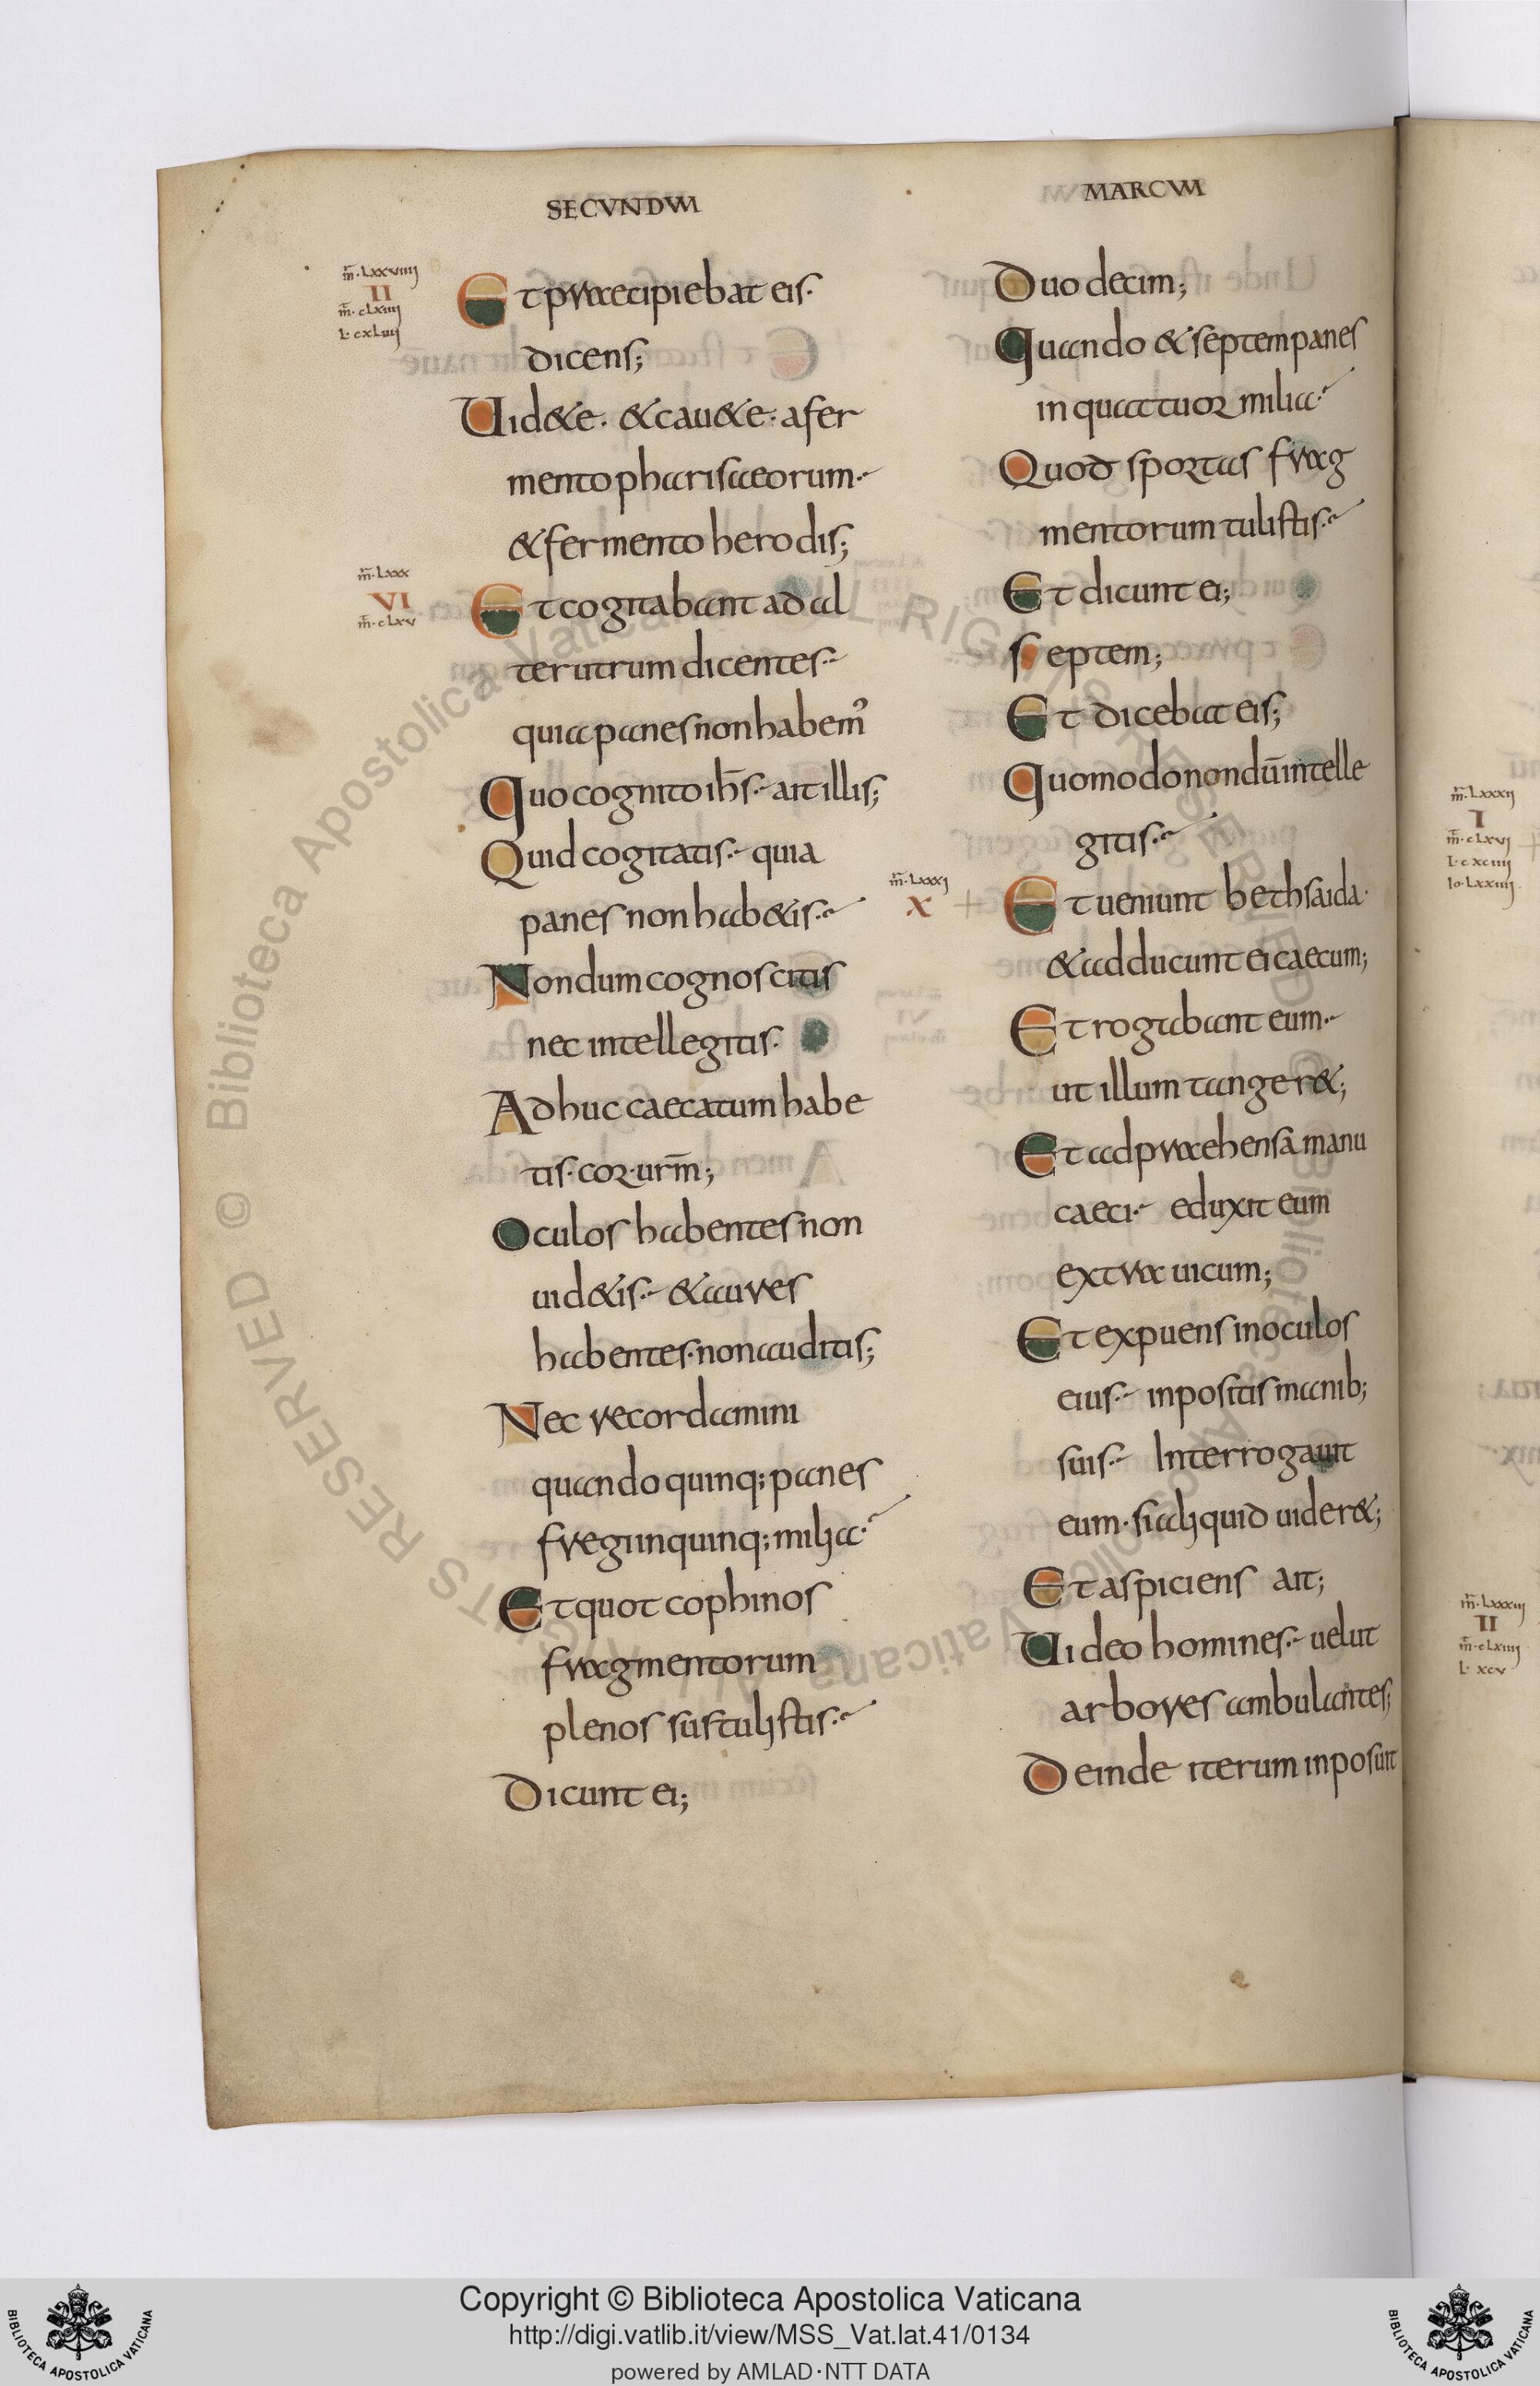 SECVNDVM
MARCVM
m̅·Lxxviiij
II
m̅·cLxiiij
L·cxLiiij
Et praecipiebat eis·
dicens;
Uid&e· &cau&e· a fer
mento pharisaeorum·
& fermento herodis;
m̅·Lxxx
VI
m̅·cLxv
Et cogitabant ad al
terutrum dicentes·
quia panes non habem᾿
Quo cognito ihs̅· ait illis;
Quid cogitatis· quia
panes non hab&is·
Nondum cognoscitis
nec intellegitis·
Adhuc caecatum habe
tis· cor· urm̅;
Oculos habentes non
uid&is· & aures
habentes· non auditis;
Nec recordamini
quando quinq; panes
fregi in quinq; milia·
Et quot cophinos
fragmentorum
plenos sustulistis·
Dicunt ei;
Duodecim;
Quando & septem panes
in quattuor milia·
Quod sportas frag
mentorum tulistis·
Et dicunt ei;
septem;
Et dicebat eis;
Quomodo nondu̅ intelle
gitis·
m̅·Lxxxj
X
Et ueniunt bethsaida·
& adducunt ei caecum;
Et rogabant eum·
ut illum tanger&;
Et adpraehensa manu
caeci· eduxit eum
extra uicum;
Et expuens in oculos
eius· inpositis manib;
suis· Interrogauit
eum· si aliquid uider&;
Et aspiciens ait;
Uideo homines· uelut
arbores ambulantes;
Deinde iterum inposuit
m̅·Lxxxij
I
m̅·cLxvj
L·cxciiij
Io·Lxxiiij
m̅·Lxxxiij
II
m̅·cLxiiij
L·xcv
© Biblioteca Apostolica Vaticana ALL RIGHTS RESERVED © Biblioteca Apostolica Vaticana ALL RIGHTS RESERVED
Copyright © Biblioteca Apostolica Vaticana
http://digi.vatlib.it/view/MSS_Vat.lat.41/0134
powered by AMLAD·NTT DATA
BIBLIOTECA APOSTOLICA VATICANA
BIBLIOTECA APOSTOLICA VATICANA